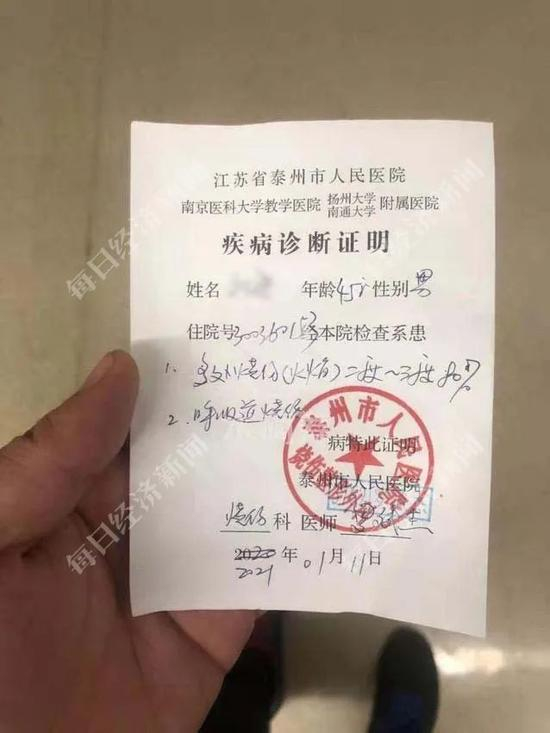 江苏省泰州市人民医院
南京医科大学教学医院 扬州大学 南通大学 附属医院
疾病诊断证明
姓名 年龄45岁性别男
住院号 经本院检查系患
1. 烧伤(火焰)二度~三度 80%
2. 呼吸道烧伤
病特此证明
泰州市人民医院
烧伤科 医师
2020年01月11日
2021
泰州市人民医院
烧伤整形外科
每日经济新闻
每日经济新闻
每日经济新闻